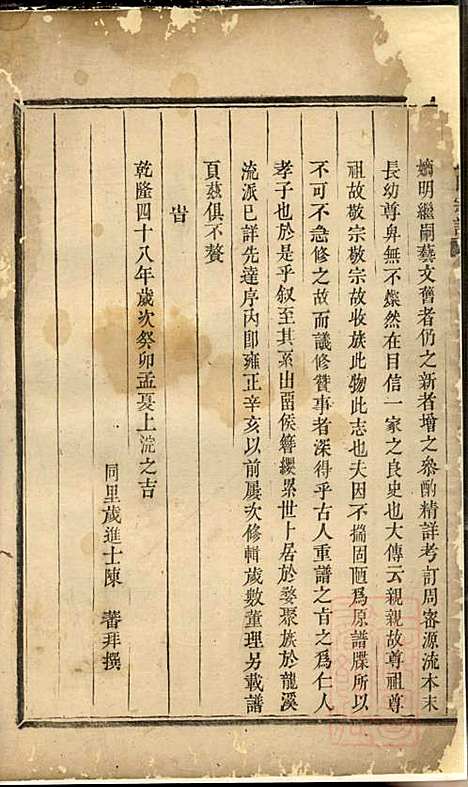 嫡明繼嗣藝文舊者仍之新者增之參酌精詳考訂周審源流本末
長幼尊卑無不燦然在目信一家之良史也大傳云親親故尊祖尊
祖故敬宗敬宗故收族此物此志也夫因不揣固陋爲原譜牒所以
不可不急修之故而議修贊事者深得乎古人重譜之旨之爲仁人
孝子也於是乎叙至其系出畱侯簪纓累世卜居於婺聚族於龍溪
流派已詳先達序內即雍正辛亥以前屢次修輯歲數董理另載譜
頁茲俱不贅
旹
乾隆四十八年歲次癸卯孟夏上浣之吉
同里歲進士陳 蕃拜撰